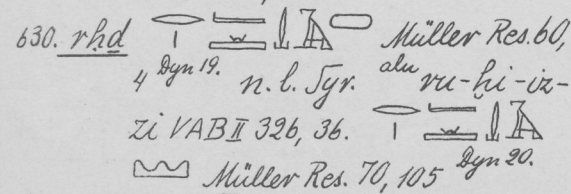 630. rḥḏ Müller Res. 60,
4 Dyn 19. n. l. Syr. alu ru-ḫi-iz-
zi VAB II 326, 36.
Müller Res. 70, 105 Dyn 20.